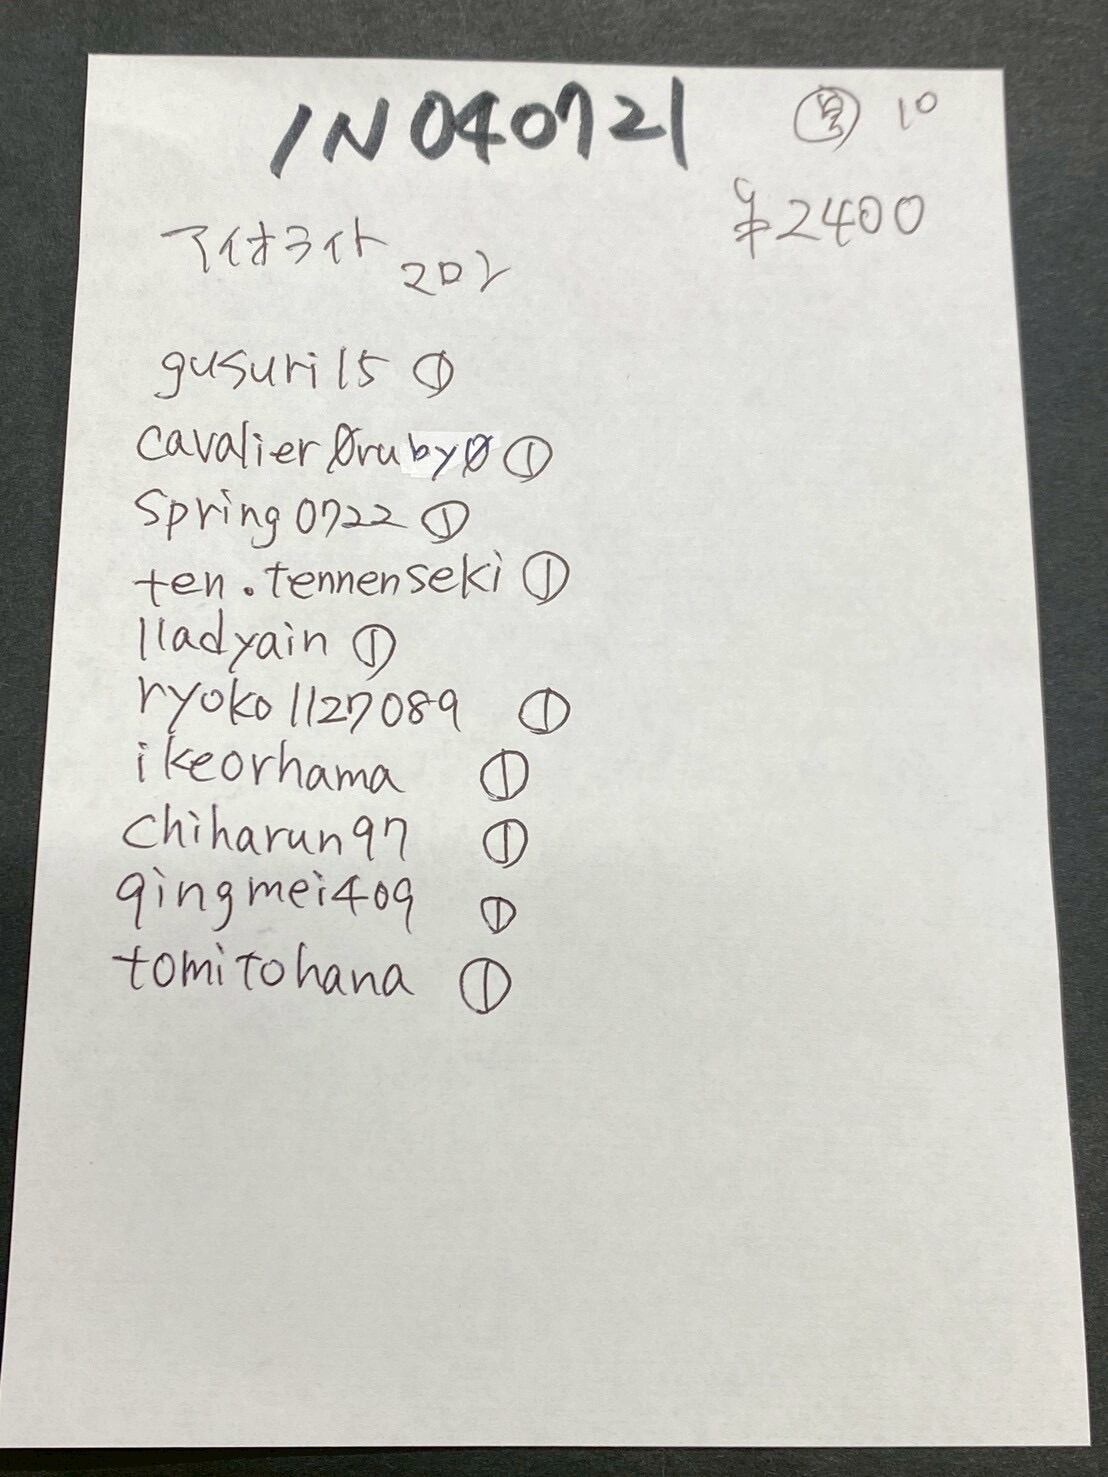 IN040721
10
¥2400
アイオライト
マロン
gusuri15 ①
cavalier0ruby0 ①
spring0722 ①
ten.tennenseki ①
lladyain ①
ryoko1127089 ①
ikeorhama ①
chiharun97 ①
qingmei409 ①
tomitohana ①